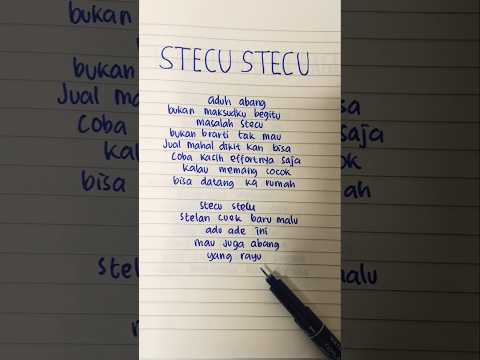 STECU STECU
aduh abang
bukan maksudku begitu
masalah stecu
bukan brarti tak mau
Jual mahal dikit kan bisa
Coba kasih effortnya saja
kalau memang cocok
bisa datang ka rumah
stecu stelu
stelan cuek baru malu
adu ade ini
mau juga abang
yang rayu